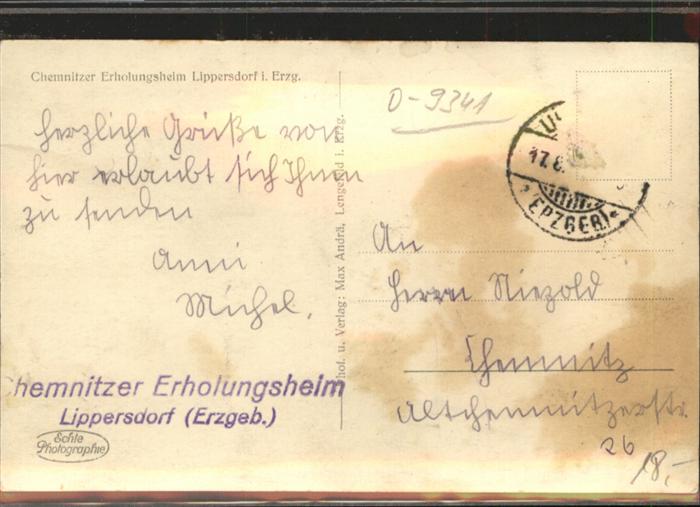 Chemnitzer Erholungsheim Lippersdorf i. Erzg.
herzliche Grüße von
hier erlaubt sich Ihnen
zu senden
Anni
Michel.
Chemnitzer Erholungsheim
Lippersdorf (Erzgeb.)
Echte
Photographie
Phot. u. Verlag: Max Andrä, Lengefeld i. Erzg.
0-9341
17.8.
ERZGEB
An
Herrn Niezold
Chemnitz
Altchemnitzerstr.
26
18,-